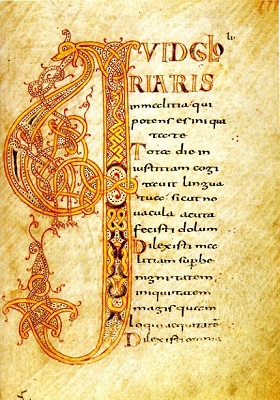 QUIDGLO
RIARIS
inmalitia qui
potens es iniqui
tate
Tota die in
iustitiam cogi
tauit lingua
tua sicut no
uacula acuta
fecisti dolum
Dilexisti ma
litiam sup be
nignitatem
iniquitatem
magis quam
loqui aequitatē
Dilexisti omnia